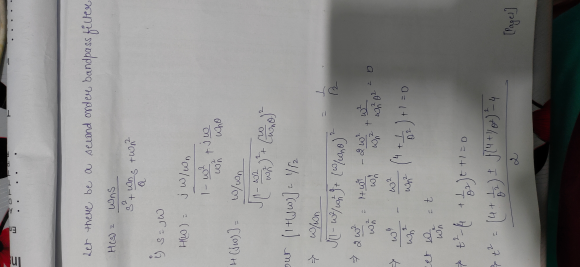 Let there be a second order bandpass filter
H(s) = ωns / s² + ωn/Q s + ωn²
if s = jω
H(ω) = jω/ωn / 1 - ω²/ωn² + jω/ωnQ
H(jω)] = ω/ωn / √(1 - ω²/ωn²)² + (ω/ωnQ)²
our [1+(jω)] = 1/√2
⇒ ω/ωn / √(1-ω²/ωn²)² + (ω/ωnQ)² = 1/√2
⇒ 2ω²/ωn² = 1 + ω⁴/ωn⁴ - 2ω²/ωn² + ω²/ωn²Q² = 0
⇒ ω⁴/ωn⁴ - ω²/ωn² (4 + 1/Q²) + 1 = 0
let ω²/ωn² = t
⇒ t² - (4 + 1/Q²)t + 1 = 0
⇒ t² = (4 + 1/Q²) ± √(4+1/Q²)² - 4 / 2
[Page 1]